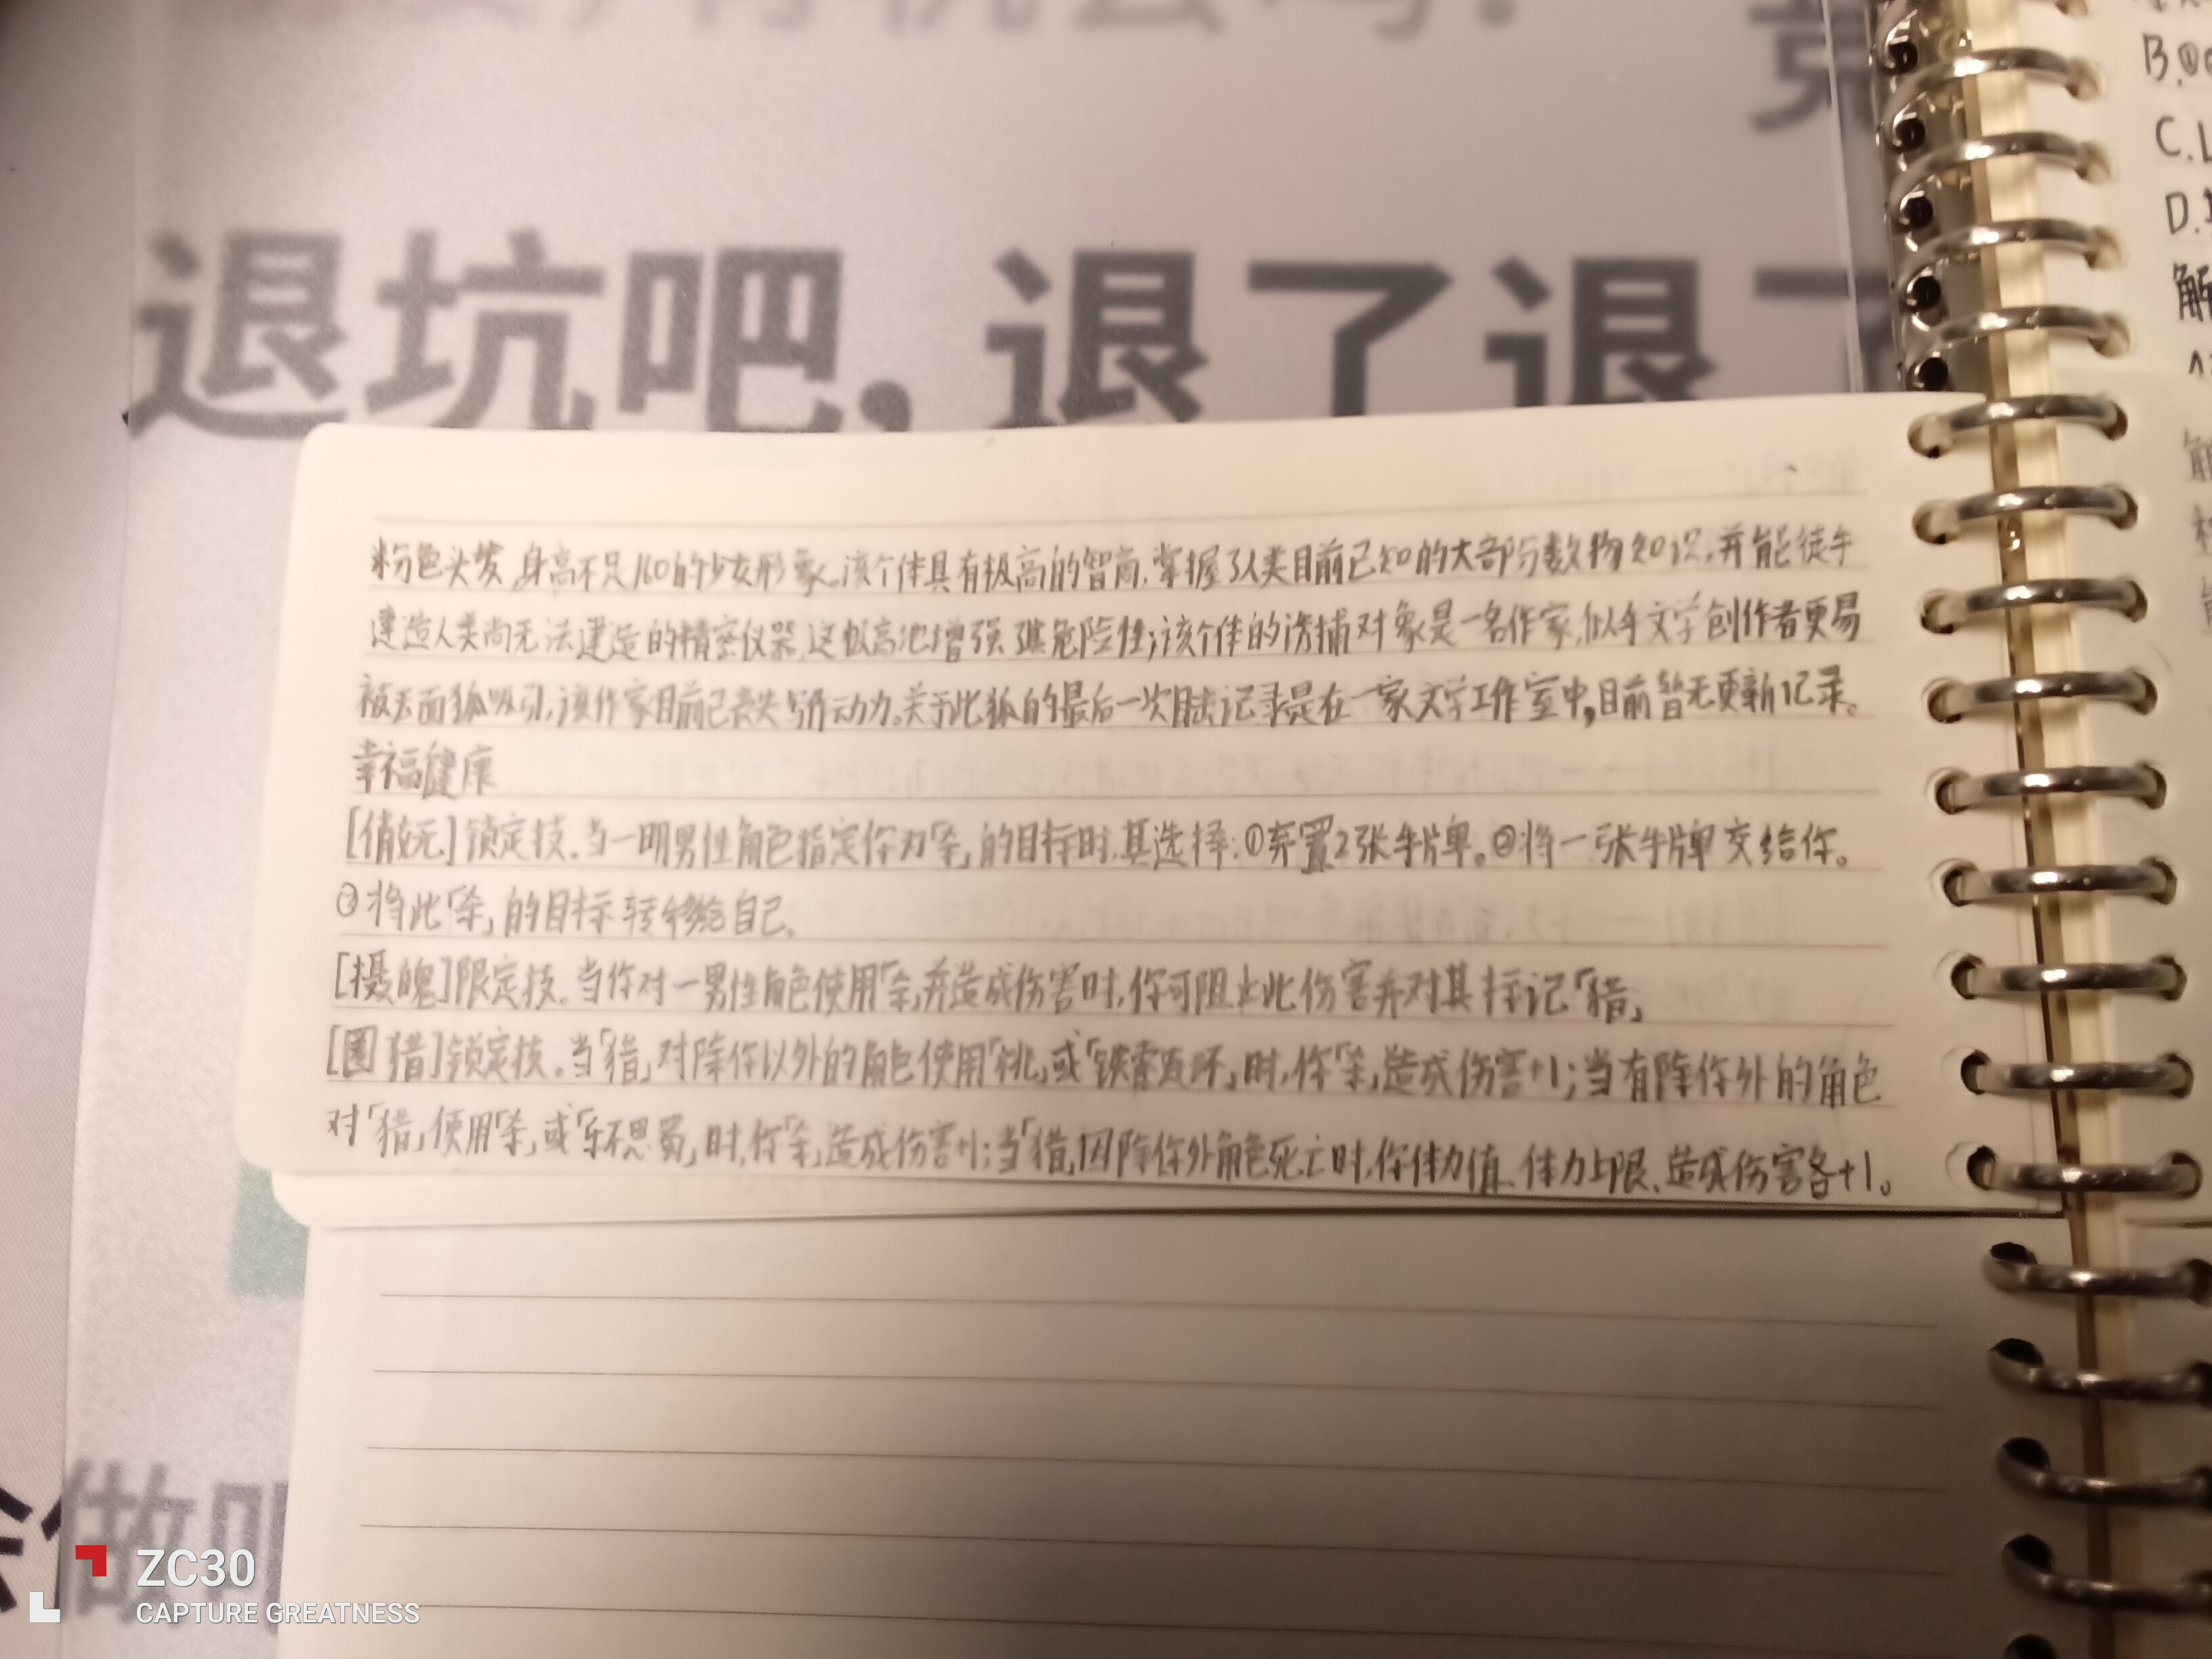 退坑吧，退了退了
粉色头发,身高不足160的少女形象。该个体具有极高的智商,掌握了人类目前已知的大部分数物知识,并能徒手
建造人类尚无法建造的精密仪器,这极高地增强其危险性;该个体的诱捕对象是一名作家,似乎文学创作者更易
被玉面狐吸引,该作家目前已丧失写作动力。关于此狐的最后一次目击记录是在一家文学工作室中,目前暂无更新记录。
幸福健康
[俏妩]锁定技.当一明男性角色指定你为「杀」的目标时.其选择:①弃置2张手牌。②将一张手牌交给你。
③将此「杀」的目标转移给自己.
[摄魄]限定技。当你对一男性角色使用「杀」并造成伤害时,你可阻止此伤害并对其标记「猎」
[围猎]锁定技.当「猎」对除你以外的角色使用「桃」或「铁索连环」时,你「杀」造成伤害+1;当有除你外的角色
对「猎」使用「杀」或「乐不思蜀」时,你「杀」造成伤害+1;当「猎」因除你外角色死亡时,你体力值、体力上限、造成伤害各+1。
做吧
B.
C.
D.
解
ZC30
CAPTURE GREATNESS